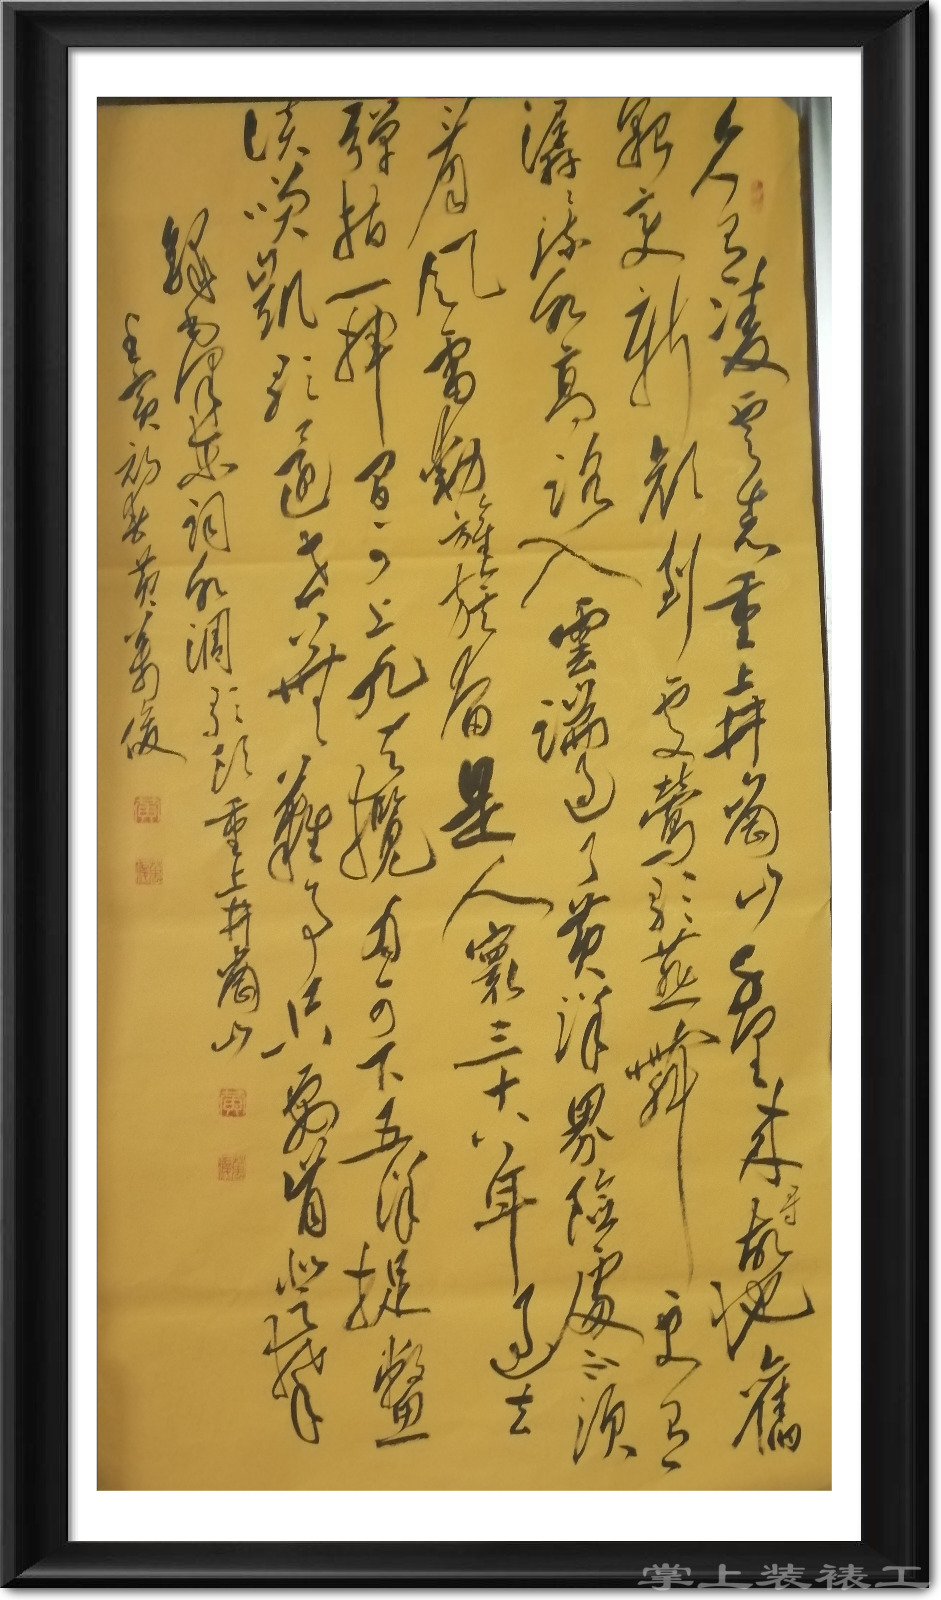 久有凌云志重上井崗山千里来寻故地舊
貌变新颜到处莺歌燕舞更有
潺潺流水高路入雲端过了黄洋界險處不须
看风雷動旌旗奋是人寰三十八年过去
彈指一揮间可上九天攬月可下五洋捉鳖
谈笑凯歌还世上無難事只要肯登攀
録毛泽东词水调歌头重上井崗山
壬寅初春黄萬俊
掌上装裱工